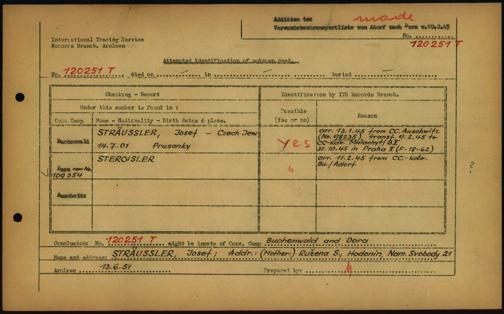 Addition to: made
Verwundetentransportliste von Adorf nach Dora v.10.2.45
No.
120251 T
International Tracing Service
Records Branch. Arolsen
Attempted identification of unknown dead.
No. 120251 T, died on — in — buried —
Checking - Report
Identification by ITS Records Branch.
Under this number is found in:
Possible (Yes or no)
Reason
Conc. Camp Name - Nationality - Birth dates & place.
Buchenwald
STRÄUSSLER, Josef - Czech Jew
14.7.01 Prusanky
yes
arr. 13.1.45 from CC. Auschwitz
transf. 9.2.45 to
CC-Kdo.
31.10.45 in Praha II (F-18-62)
Dora new No. 109354
STEROISLER
"
arr. 11.2.45 from CC-Kdo.
Bu./Adorf.
Auschwitz
Conclusion: No. 120251 T might be inmate of Conc. Camp Buchenwald and Dora
Name and address: STRÄUSSLER, Josef; Addr.: (Mother:) Ruzena S., Hodonin, Nam. Svobody 21
Arolsen 13.6.51 Prepared by: